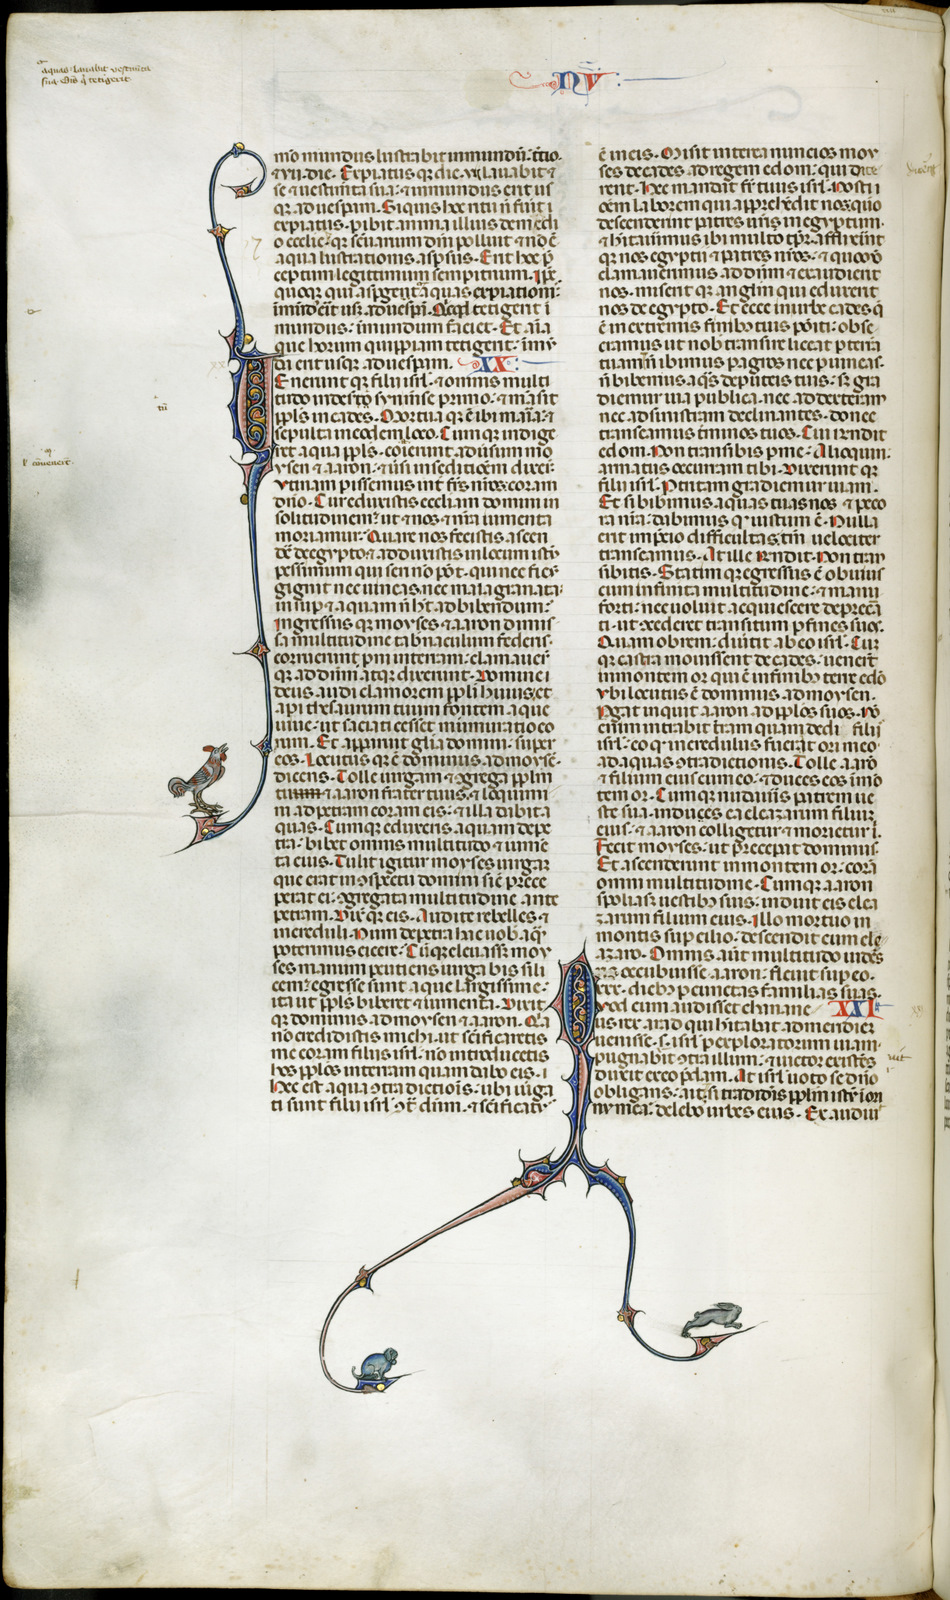 aquas lauabit uestim̄ta
sua. Om̄is q̄ tetigerit
NV
mo mundus lustrabit inmundū. t̄cio.
⁊ vii. die. Expiatus q; die vii. lauabit ⁊
se ⁊ uestim̄ta sua: ⁊ inmundus erit us
q; ad uesperam. Siquis hoc ritu n̄ fu̇it
expiatus. ꝑibit anima illius de medi
o ecclīe: q; sc̄uarium dn̄i polluit ⁊ nō ē
aqua lustrationis asꝑsus. Erit hoc p̄
ceptum legittimum sempiternum. Ip̄e
quoq; qui asꝑgit aquas expiationis
inmūd̄ erit usq; ad uesꝑā. Q̇cqd tetigerit ī
mundus: inmundum faciet. Et aīa
que horum quippiam tetigerit: īmū
da erit usq; ad uesperam. XX.
Enerunt q; filii isrl. ⁊ omnis multi
tudo in desertū syn mense primo: ⁊ mansit
ppl̄s in cades. Mortua q; ē ibi maria: ⁊
sepulta in eodem loco. Cumq; indige
ret aqua ppl̄s. coierunt aduersum mo
ysen ⁊ aaron: ⁊ u̇si in seditiōem dixer̄.
Vtinam perissemus int̄ frs̄ nr̄os coram
dn̄o. Cur eduxistis ecclīam domini in
solitudinem: ut ⁊ nos ⁊ nr̄a iumenta
moriamur: Quare nos fecistis ascen
d̄e de egypto: ⁊ adduxistis in locum istū
pessimum qui seri nō pōt. qui nec ficū
gignit nec uineas nec malagranata:
insuꝑ ⁊ aquam n̄ h̄t ad bibendum:
Ingressus q; moyses ⁊ aaron dimis
sa multitudine tabnaculum federis.
corruerunt ꝓni in terram. clamauer̄
q; ad dn̄m atq; dixerunt. Domine
deus. audi clamorem ppl̄i huius: et
api eis thesaurum tuum fontem aque
uiue: ut saciati cesset murmuratio eo
rum. Et apparuit gl̄ia domini. super
eos. Locutus q; ē dominus ad moysē
dicens. Tolle uirgam ⁊ ꝯgrega pplm
⁊ aaron frater tuus. ⁊ loquimi
ni ad petram coram eis: ⁊ illa dabit a
quas. Cumq; eduxeris aquam de pe
tra: bibet omnis multitudo ⁊ iume
ta eius. Tulit igitur moyses uirgā
que erat in ꝯspectu domini sic̄ prece
perat ei: ꝯgregata multitudine ante
petram. Dix̄ q; eis. Audite rebelles ⁊
increduli. Num de petra hac uob̄ aq̄
poterimus eicere: Cūq; eleuass; moy
ses manum. ꝑcutiens uirga bis sili
cem: egresse sunt aque largissime.
ita ut ppl̄s biberet ⁊ iumenta. Dixit
q; dominus ad moysen ⁊ aaron. Q̇a
nō credidistis michi. ut sc̄ificaretis
me coram filiis isrl. nō introducetis
hos ppl̄os in terram quam dabo eis.
Hec est aqua ꝯtradictiōis: ubi iu̇ga
ti sunt filii isrl. ꝯt̄ dn̄m. ⁊ sc̄ificat̄
ē in eis. Misit interea nuncios moy
ses de cades ad regem edom: qui dice
rent. Hec mandat fr̄ tuus isrl. Nosti
oēm laborem qui apprehēdit nos: quo
descenderint patres nr̄i in egyptum.
⁊ hītauimus ibi multo tp̄r. afflixerint
q; nos egyptii ⁊ patres nr̄os: ⁊ quom̄o
clamauerimus ad dn̄m ⁊ exaudierit
nos. miserit q; anglm̄ qui eduxerit
nos de egypto. Et ecce in urbe cades q̄
ē in extremis finib; tuis pōiti: obse
cramus ut nob̄ transire liceat ꝑ terrā
tuam: n̄ ibimus ꝑ agros nec ꝑ uineas.
n̄ bibemus aq̄s de puteis tuis: sʒ gra
diemur uia publica. nec ad dexteram
nec ad sinistram declinantes. donec
transeamus t̄minos tuos. Cui rn̄dit
edom. Non transibis ꝑ me: Alioquin:
armatus occurram tibi. Dixerunt q;
filii isrl. Per tritam gradiemur uiam.
Et si biberimus aquas tuas nos ⁊ peco
ra nr̄a: dabimus q̇ iustum ē. Nulla
erit in p̄cio difficultas. tm̄ uelociter
transeamus. At ille rn̄dit. Non tran
sibitis. Statim q; egressus ē obuius
cum infinita multitudine: ⁊ manu
forti: nec uoluit acquiescere deprecā
ti. ut ꝯcederet transitum ꝑ fines suos.
Quam obrem. diu̇tit ab eo isrl. Cum
q; castra mouissent de cades. uenert̄
in montem or qui ē in finib; terre edō
vbi locutus ē dominus ad moysen.
Pergat inquit aaron ad ppl̄os suos. Nō
enim intrabit t̄ram quam dedi filiis
isrl. eo q̇ incredulus fuerat ori meo
ad aquas ꝯtradictionis. Tolle aarō
⁊ filium eius cum eo: ⁊ duces eos in mō
tem or. Cumq; nudau̇is patrem ue
ste sua. indues ea eleazarum filium
eius: ⁊ aaron colligetur ⁊ morietur ī.
Fecit moyses: ut p̄cepit dominus.
Et ascenderunt in montem or: corā
omni multitudine. Cumq; aaron
spoliass; uestib; suis: induit eis elea
zarum filium eius. Illo mortuo in
montis supercilio: descendit cum ele
azaro. Omnis aūt multitudo uidēs
occubuisse aaron: fleuit suꝑ eo.
xxx. dieb; ꝑ cunctas familias suas.
vod cum audisset chanane XXI
us rex arad qui hītabat ad meridiē
uenisse. s. isrl. ꝑ exploratorum uiam.
pugnabit ꝯtra illum: ⁊ uictor existēs
duxit ex eo p̄dam. At isrl. uoto se dn̄o
obligans. ait. si tradid̄is pplm̄ istū ī ma
nu mea: delebo urbes eius. Exaudiu̇